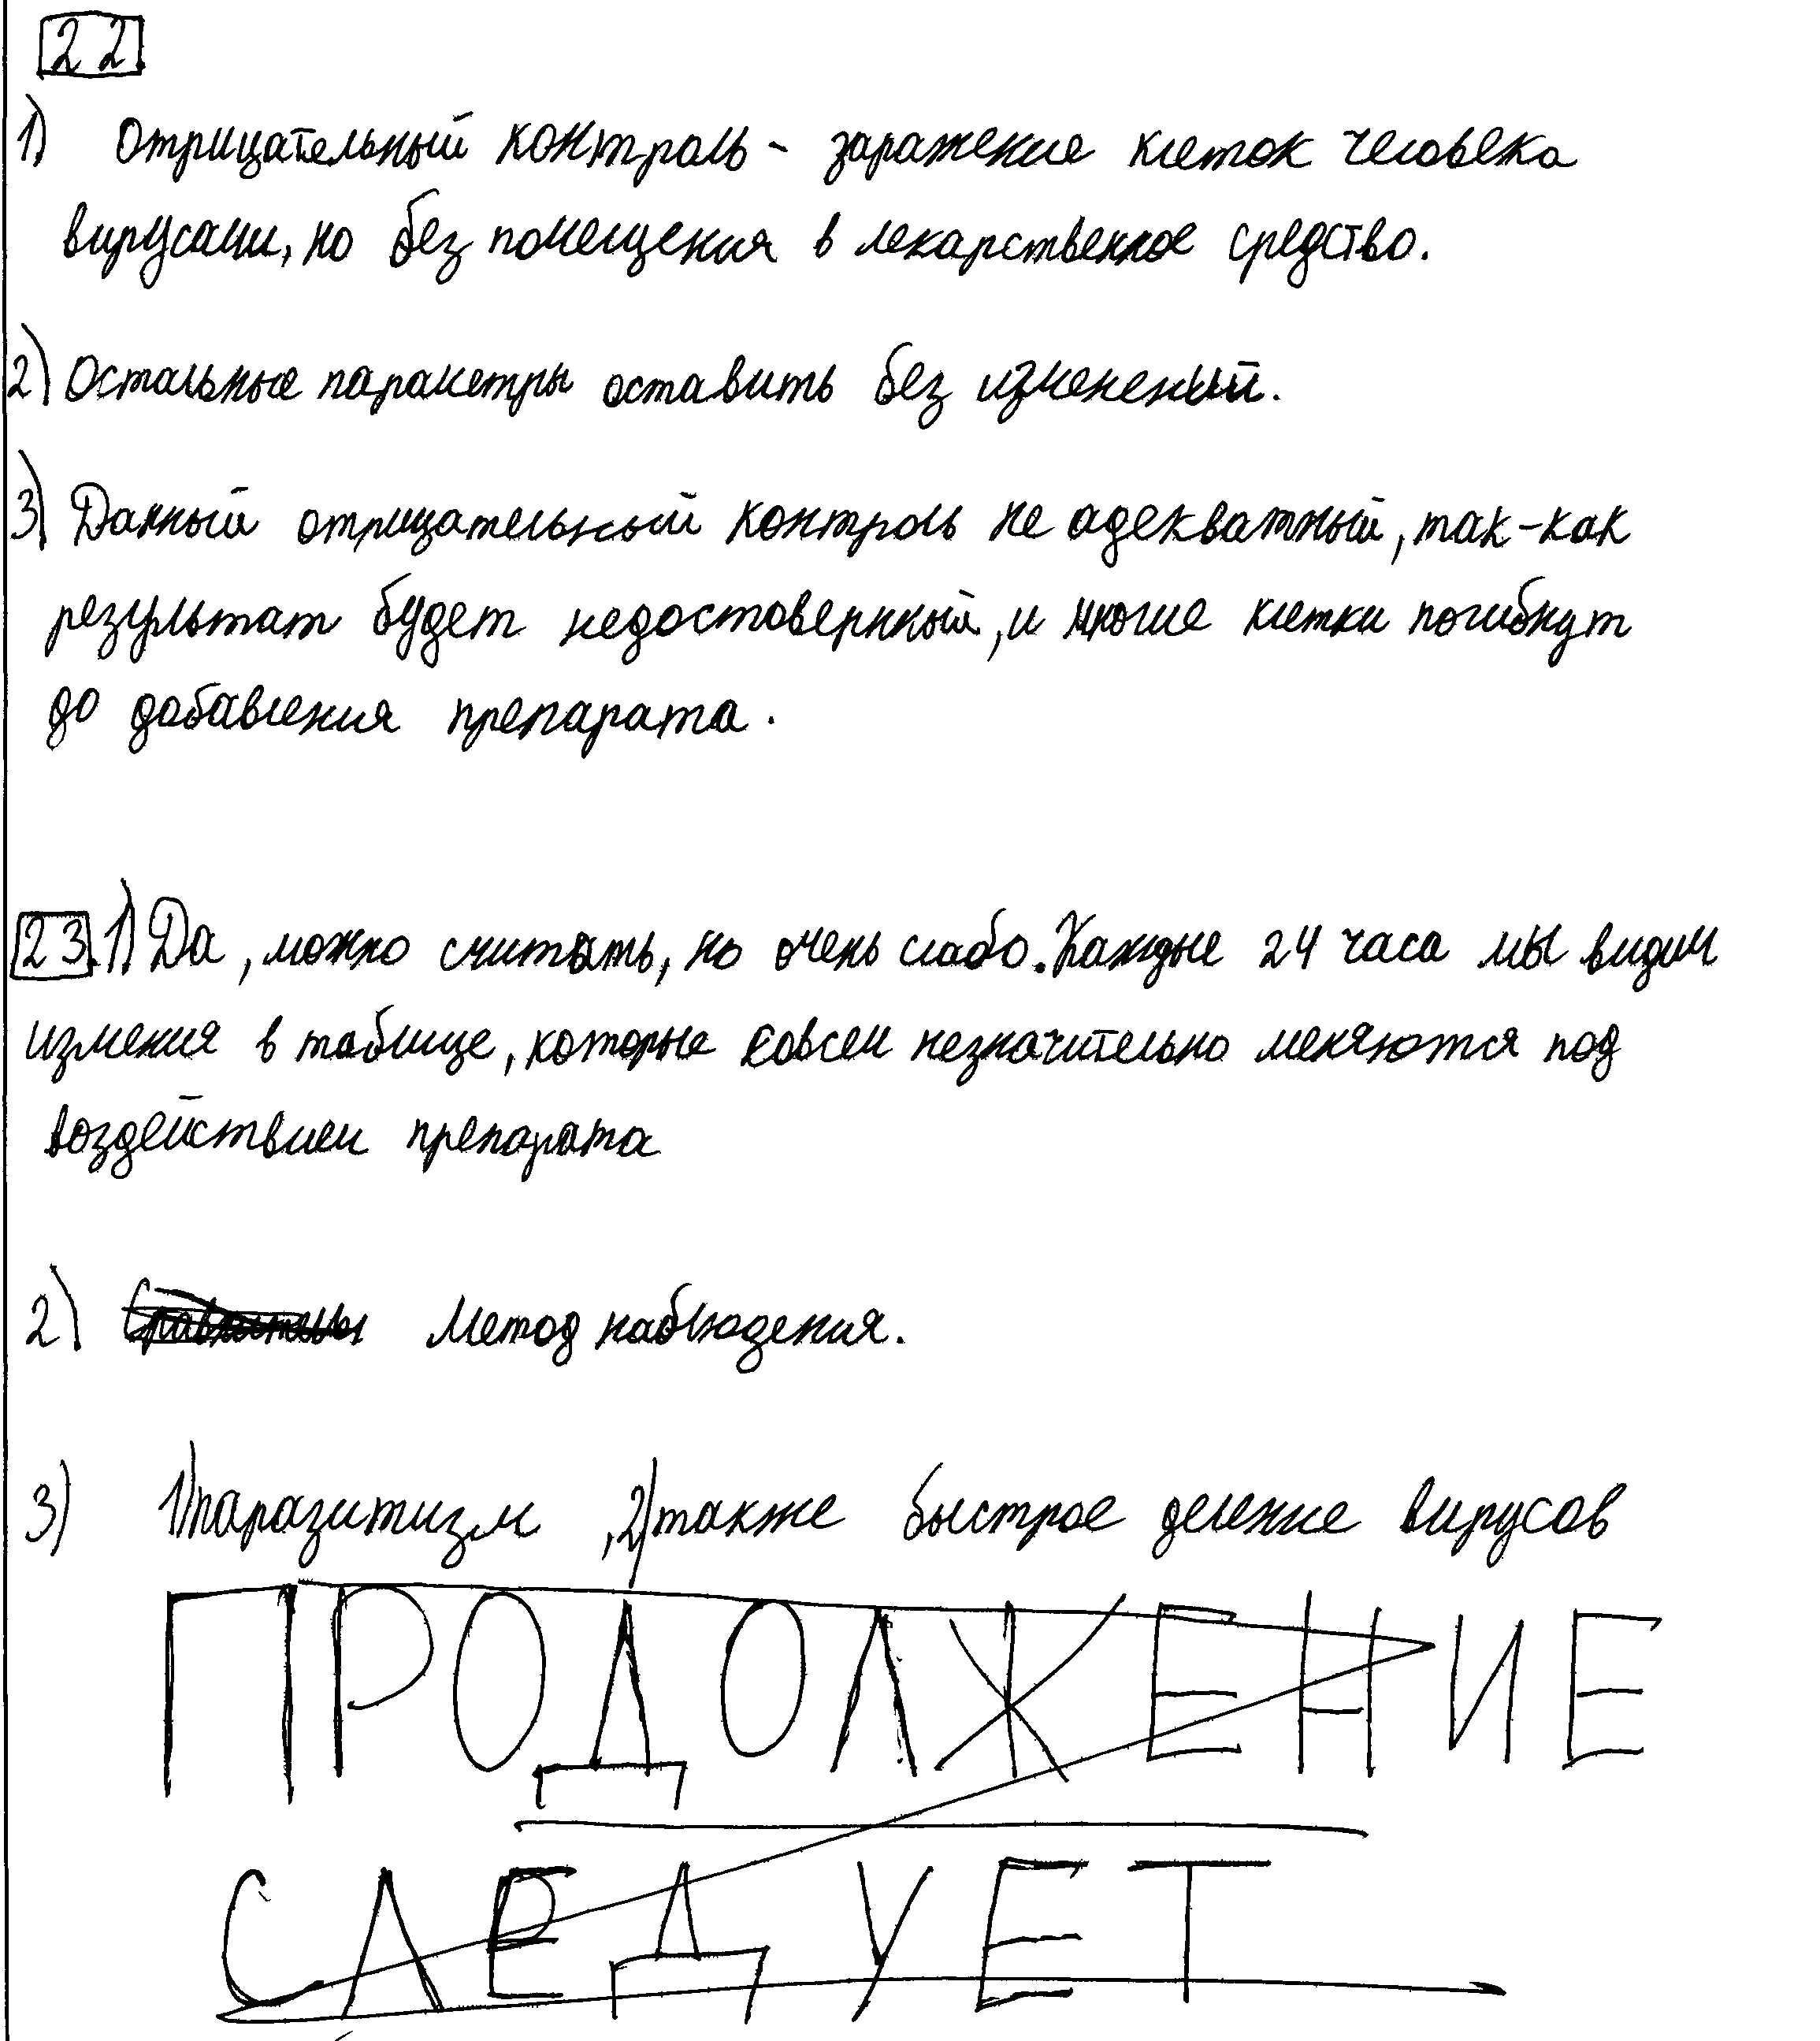 22.
1) Отрицательный контроль - заражение клеток человека
вирусами, но без помещения в лекарственное средство.
2) Остальные параметры оставить без изменений.
3) Данный отрицательный контроль не адекватный, так-как
результат будет недостовернный, и многие клетки погибнут
до добавления препарата.
23. 1) Да, можно считать, но очень слабо. Каждые 24 часа мы видим
измения в таблице, которые совсем незначительно меняются под
воздействием препарата
2) Метод наблюдения.
3) 1) паразитизм, 2) также быстрое деление вирусов
ПРОДОЛЖЕНИЕ
СЛЕДУЕТ